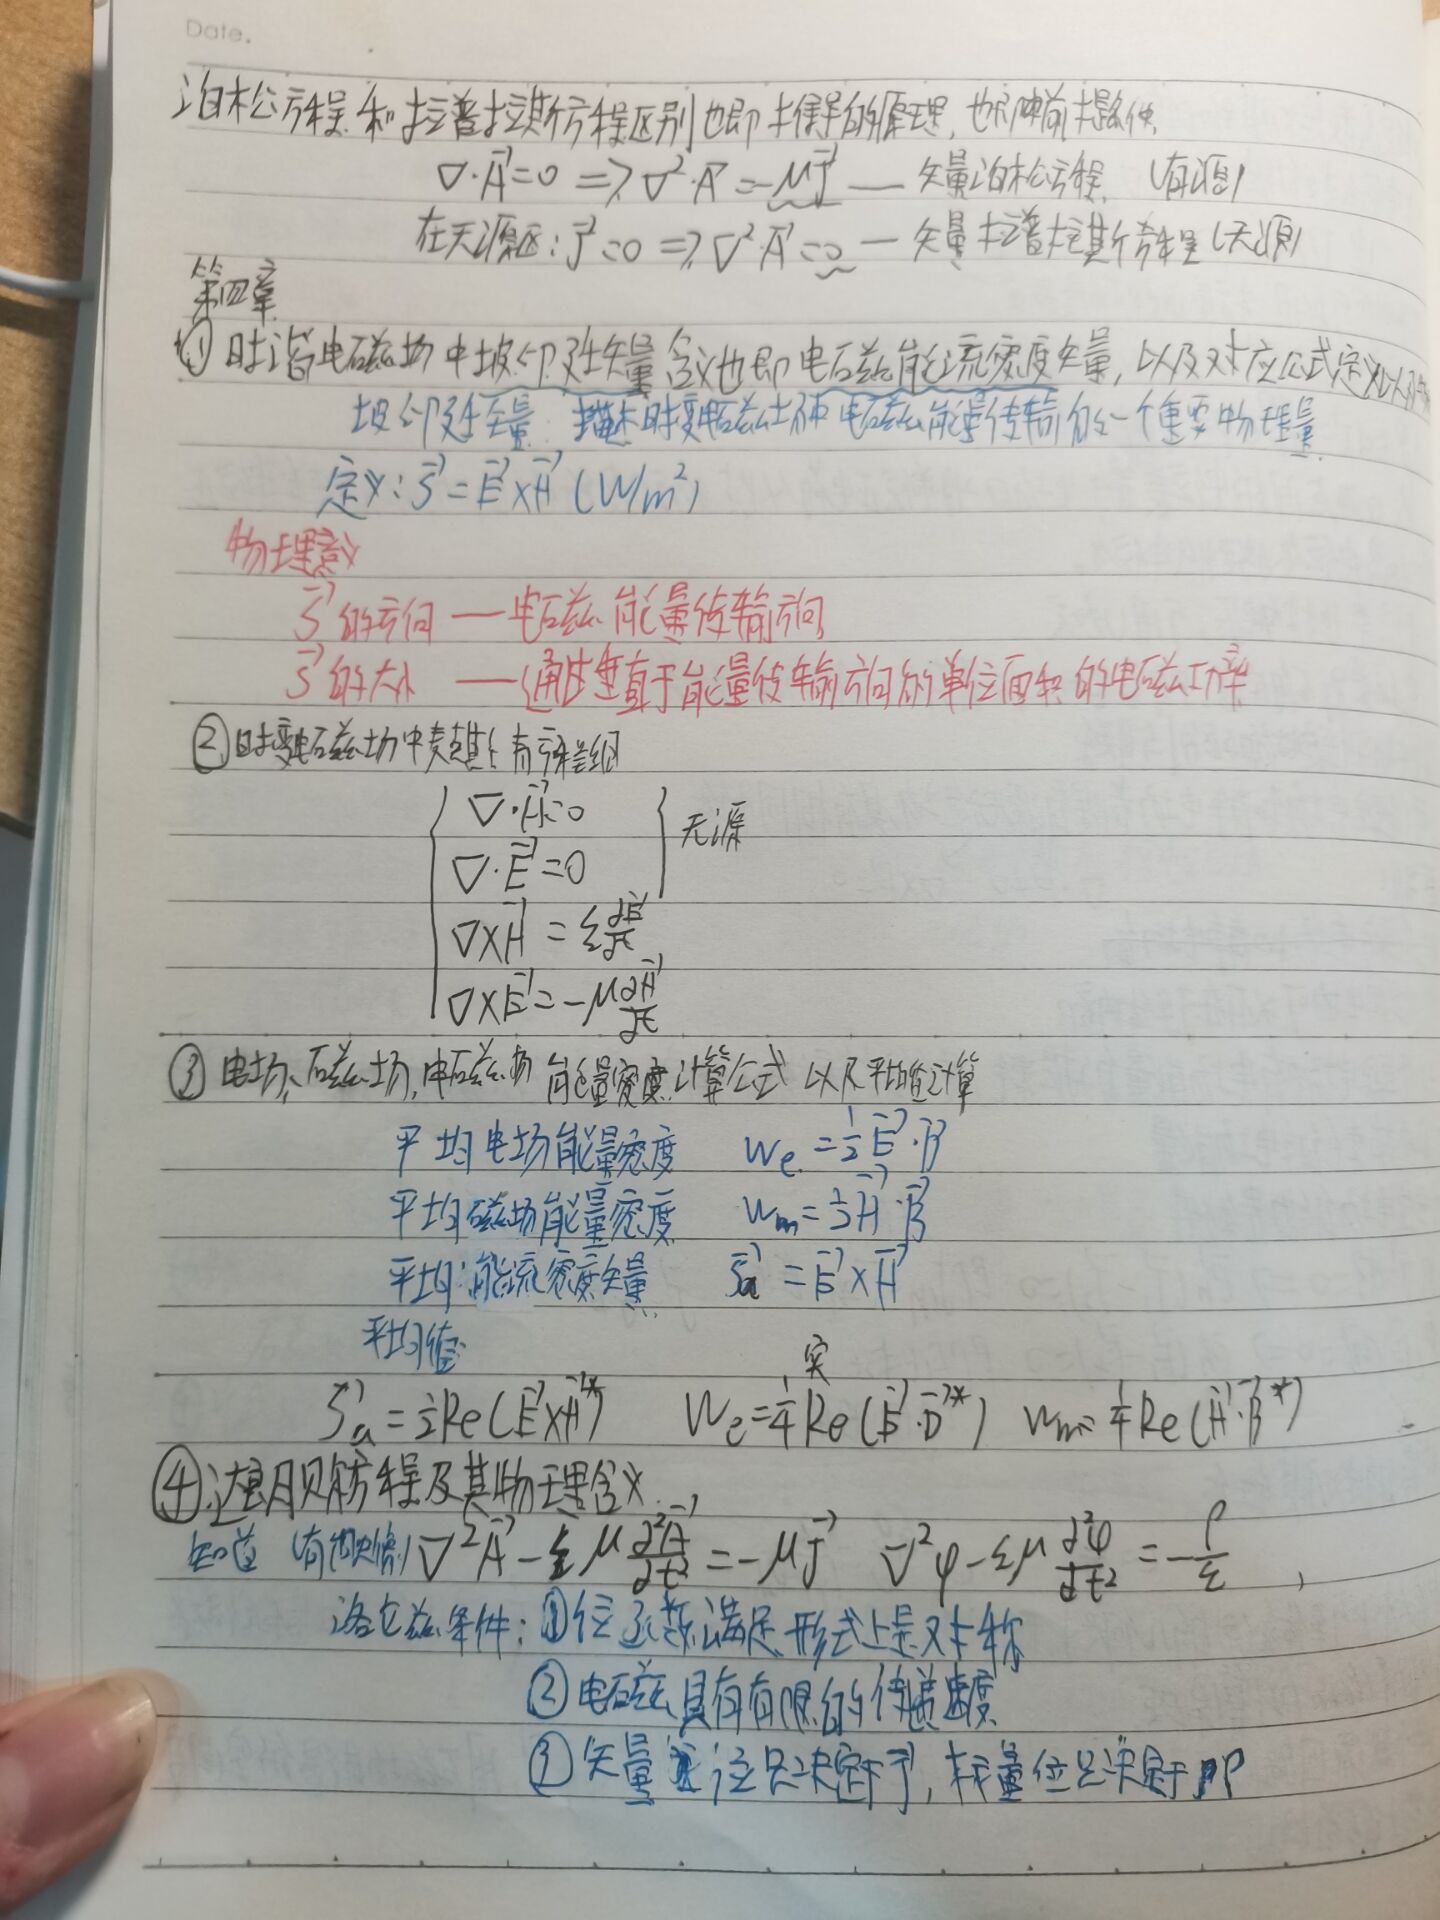 Date.
泊松方程和拉普拉斯方程区别也即推导的原理,也即前提条件.
∇·A⃗=0 ⇒ ∇²·A⃗=-μJ⃗ — 矢量泊松方程. (有源)
在无源区:J⃗=0 ⇒ ∇²·A⃗=0 — 矢量拉普拉斯方程(无源)
第四章
① 时谐电磁场中坡印廷矢量含义也即电磁能流密度矢量,以及对应公式定义以及
坡印廷矢量:描述时变电磁场中电磁能量传输的一个重要物理量
定义:S⃗=E⃗×H⃗ (W/m²)
物理意义
S⃗的方向 — 电磁能量传输方向
S⃗的大小 — 通过垂直于能量传输方向的单位面积的电磁功率
② 时变电磁场中麦克斯韦方程组
∇·H⃗=0
∇·E⃗=0 无源
∇×H⃗=ε∂E⃗/∂t
∇×E⃗=-μ∂H⃗/∂t
③ 电场、磁场,电磁场能量密度计算公式以及平均值计算
平均电场能量密度 We=½E⃗·D⃗
平均磁场能量密度 Wm=½H⃗·B⃗
平均能流密度矢量 S⃗a=E⃗×H⃗
平均值: 实
S⃗a=½Re(E⃗×H⃗*) We=¼Re(E⃗·D⃗*) Wm=¼Re(H⃗·B⃗*)
④ 达朗贝尔方程及其物理含义
知道 ∇²A⃗-εμ∂²A⃗/∂t²=-μJ⃗ ∇²φ-εμ∂²φ/∂t²=-ρ/ε,
洛仑兹条件:①位函数满足形式上是对称
②电磁具有有限的传递速度
③矢量位只决定于J⃗,标量位只决定于ρ